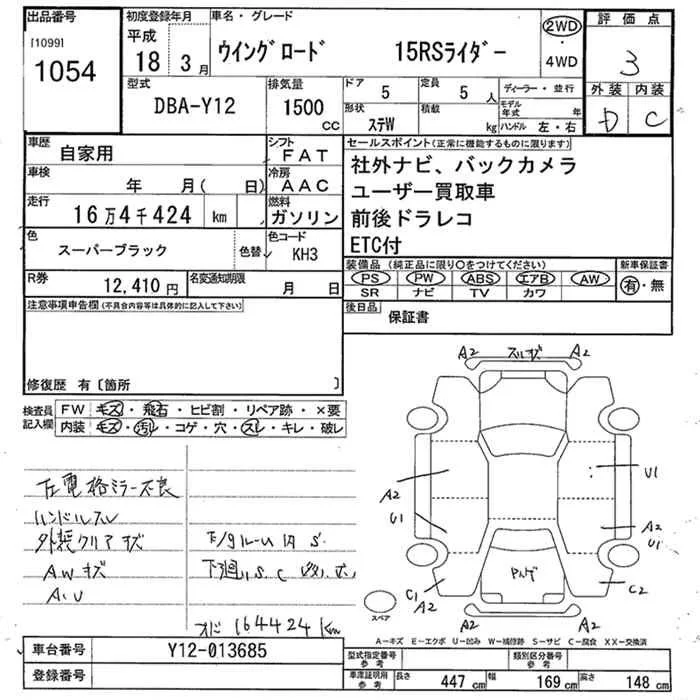 出品番号
[1099]
1054
初度登録年月
平成
18 3月
車名・グレード
ウイングロード 15RSライダー
2WD
・
4WD
評価点
3
外装 内装
D C
型式
DBA-Y12
排気量
1500
CC
ドア
5
定員
5 人
形状
ステW
積載
kg
ディーラー・並行
モデル年式 年
ハンドル 左・右
車歴
自家用
シフト
FAT
車検
年 月( 日)
冷房
AAC
走行
16万4千424 km
燃料
ガソリン
色
スーパーブラック
色替
色コード
KH3
R券
12,410円
名変通知期限
月 日
セールスポイント(正常に機能するものに限ります)
社外ナビ、バックカメラ
ユーザー買取車
前後ドラレコ
ETC付
装備品(純正品に限り○をつけてください)
PS PW ABS エアB AW
SR ナビ TV カワ
新車保証書
有・無
後日品
保証書
注意事項申告欄(不具合内容等は具体的に記入して下さい)
修復歴 有〔箇所 〕
検査員
記入欄
FW キズ・飛石・ヒビ割・リペア跡・×要
内装 キズ・汚レ・コゲ・穴・スレ・キレ・破レ
左電格ミラー不良
ハンドルスレ
外装クリアキズ
AWキズ
A.U
下廻.S.C
メーター 164424km
A2 A2
A2
U1
U1
A2
U1
C1
A2
C2
A2 A2
スペア
A-キズ E-エクボ U-凹み W-補修跡 S-サビ C-腐食 XX-交換済
車台番号
Y12-013685
登録番号
型式指定番号
参考
類別区分番号
参考
車庫証明用
参考
長さ 447 cm 幅 169 cm 高さ 148 cm